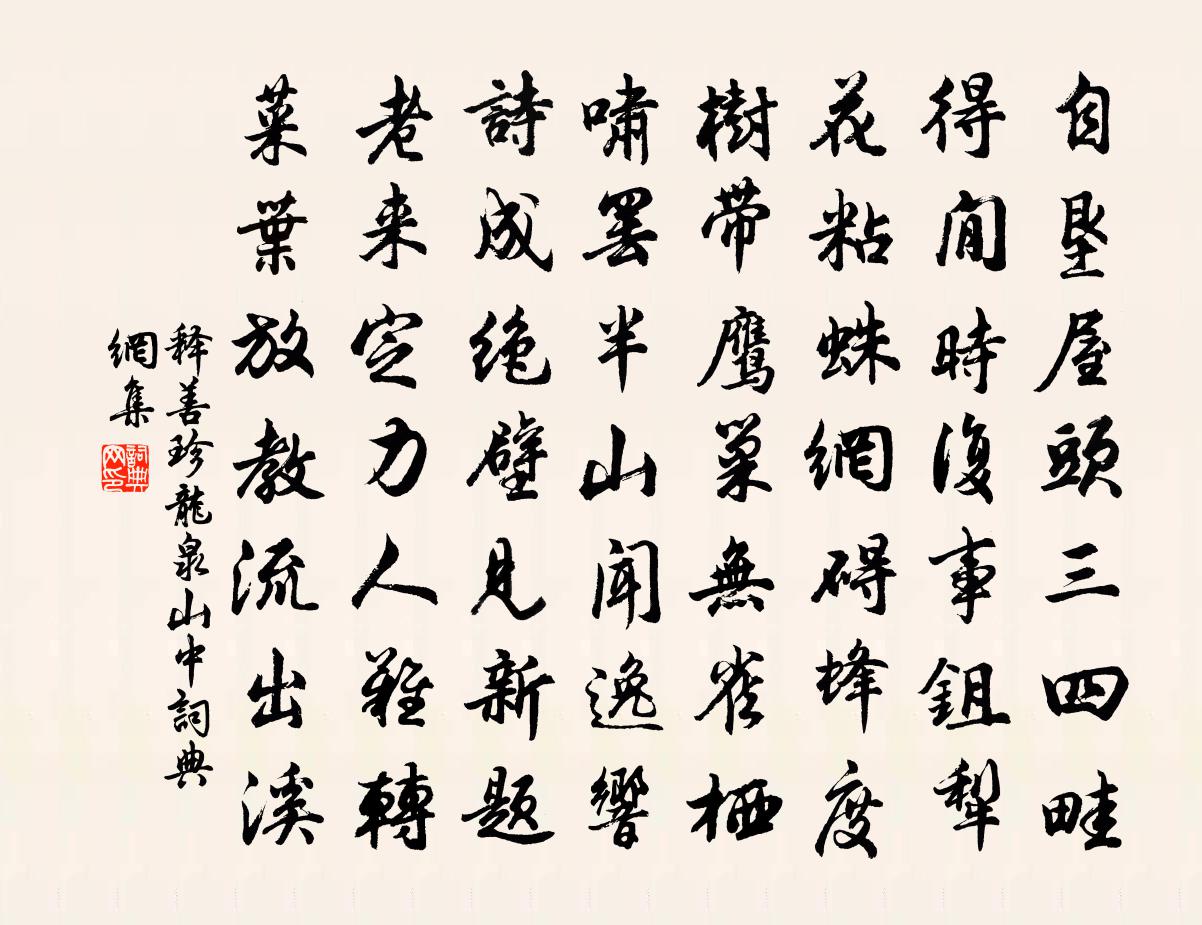 自墾屋頭三四畦
得閒時復事鉏犁
花粘蛛網碍蜂度
樹帶鷹巢無雀栖
嘯罷半山聞逸響
詩成绝壁見新题
老来定力人難轉
菜葉放教流出溪
释善珍龍泉山中詞典
網集
詞典
网印